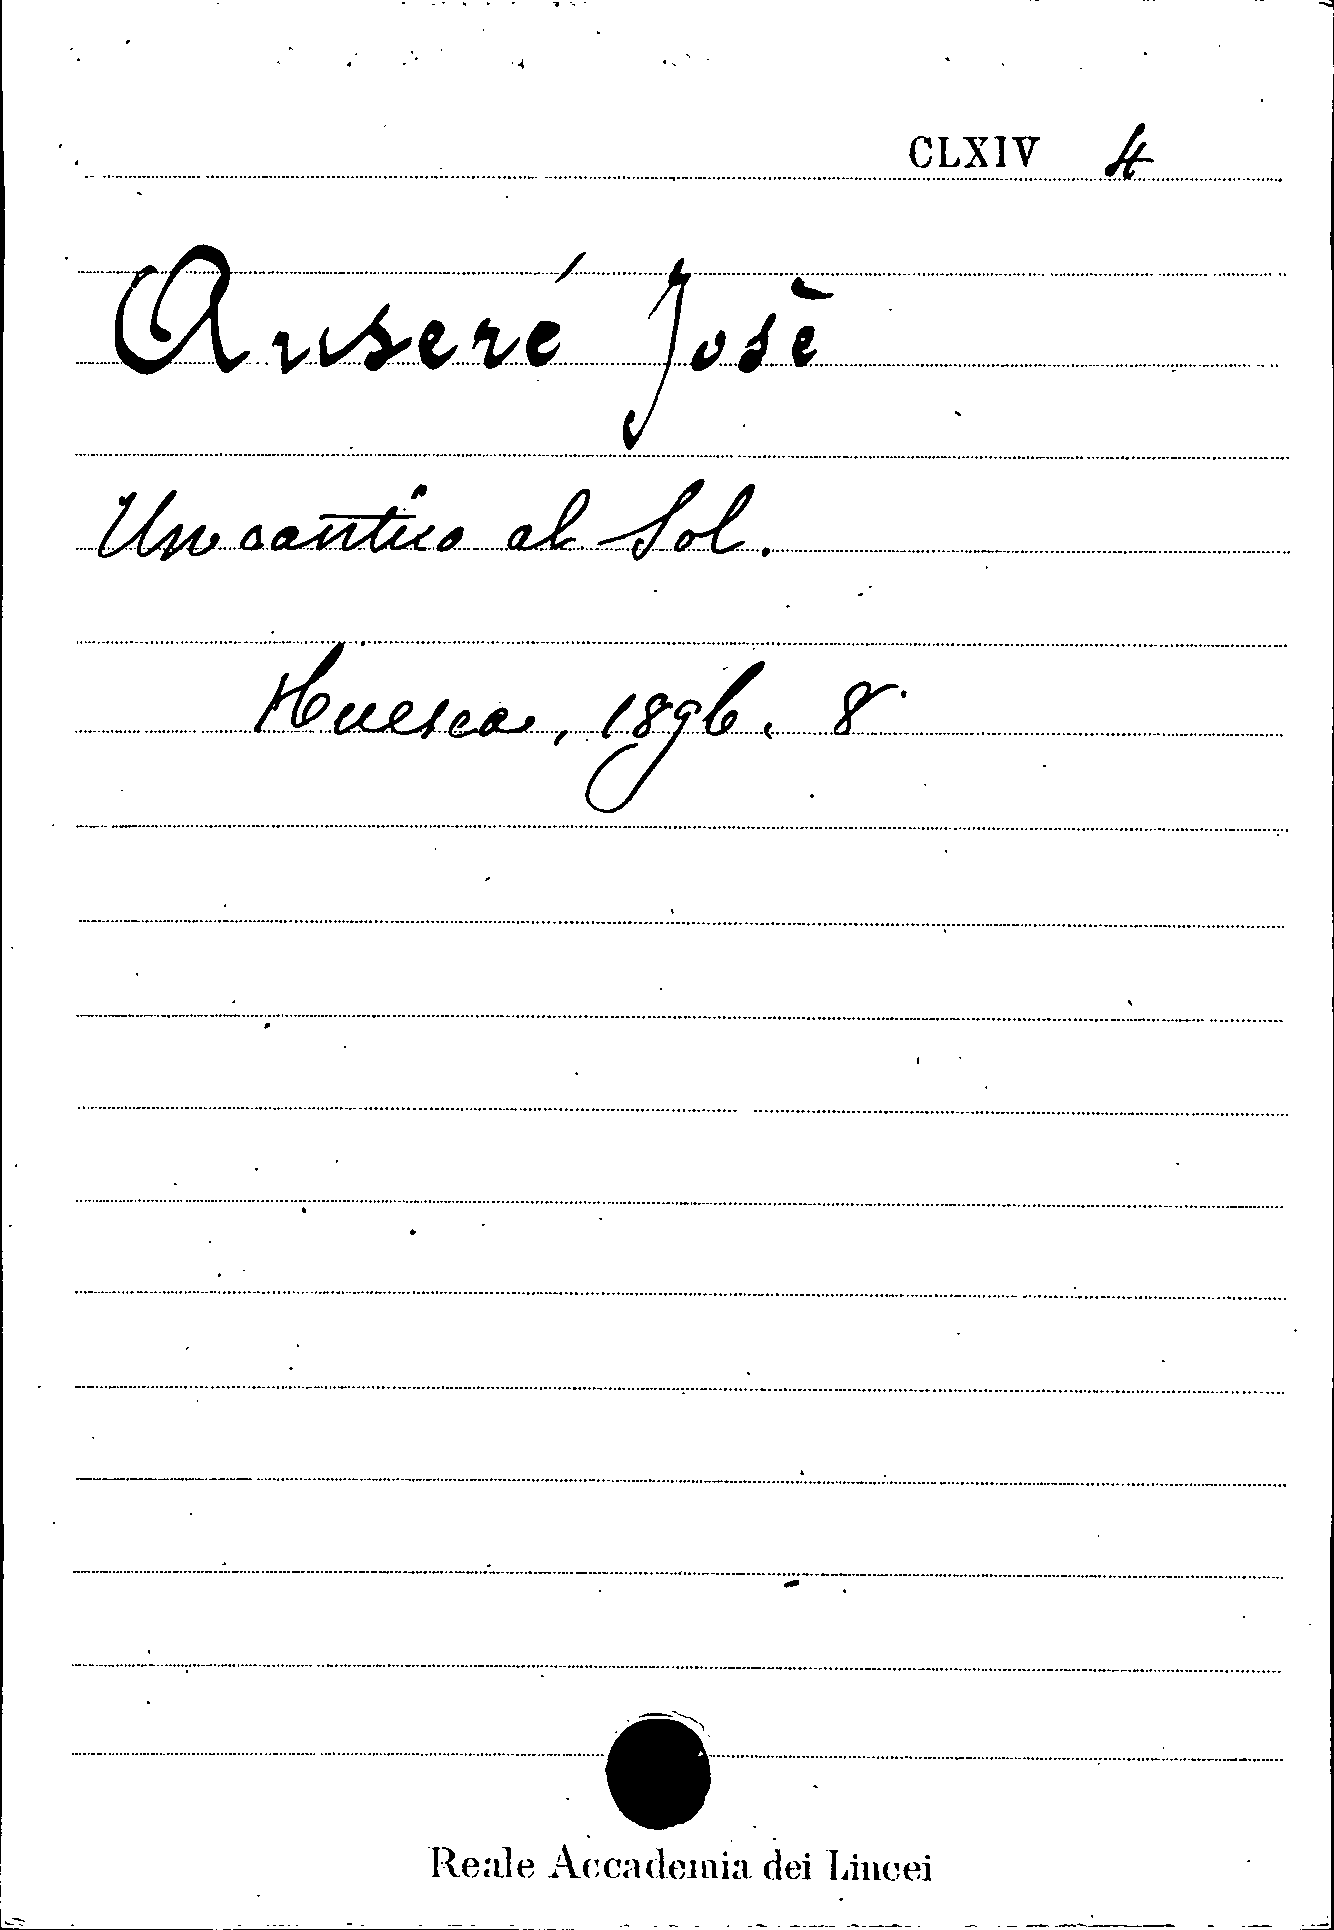 CLXIV 4
Auseré Josè
Un cantico al Sol.
Huesca, 1896. 8°
Reale Accademia dei Lincei